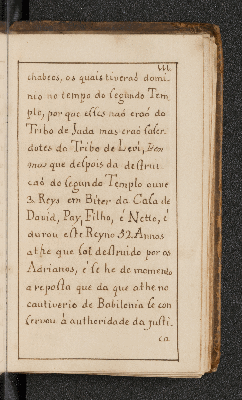 chabeos, os quais tiveraõ domi-
nio no tempo do segundo Tem
plo, por que elles naõ eraõ do
Tribo de Juda mas eraõ sacer
dotes da Tribo de Levi,
mas que despois da destrui-
caõ do segundo Templo ouve
3. Reys em Biter da Casa de
David, Pay, Filho, é Netto, é
durou este Reyno 52. Annos
athe que foi destruido por os
Adrianos, é se he de momento
a reposta que da que athe no
cautiverio de Babilenia se con
servou á autheridade da justi-
ca